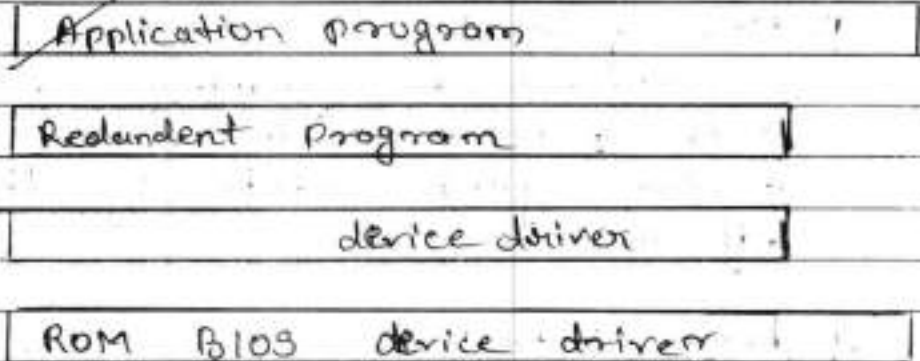 Application program
Redundent Program
device driver
ROM BIOS device driver